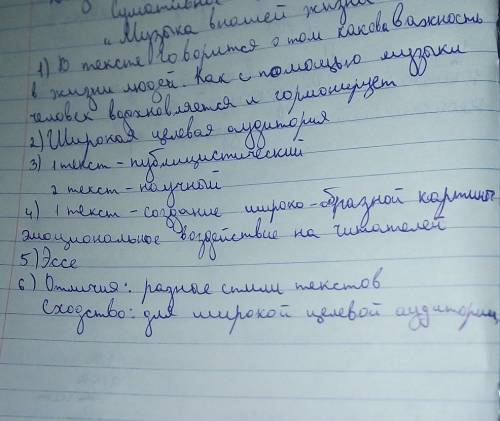 Сумативной
"Музыка в нашей жизни
1) В тексте говорится о том какова важность
в жизни людей. Как с помощью музыки
человек вдохновляется и гормонирует
2) Широкая целевая аудитория
3) 1 текст - публицистический
2 текст - научной
4) 1 текст - создание широко-образной картины
эмоциональное воздействие на читателей
5) Эссе
6) Отличия: разные стили текстов
Сходство: для широкой целевой аудитории